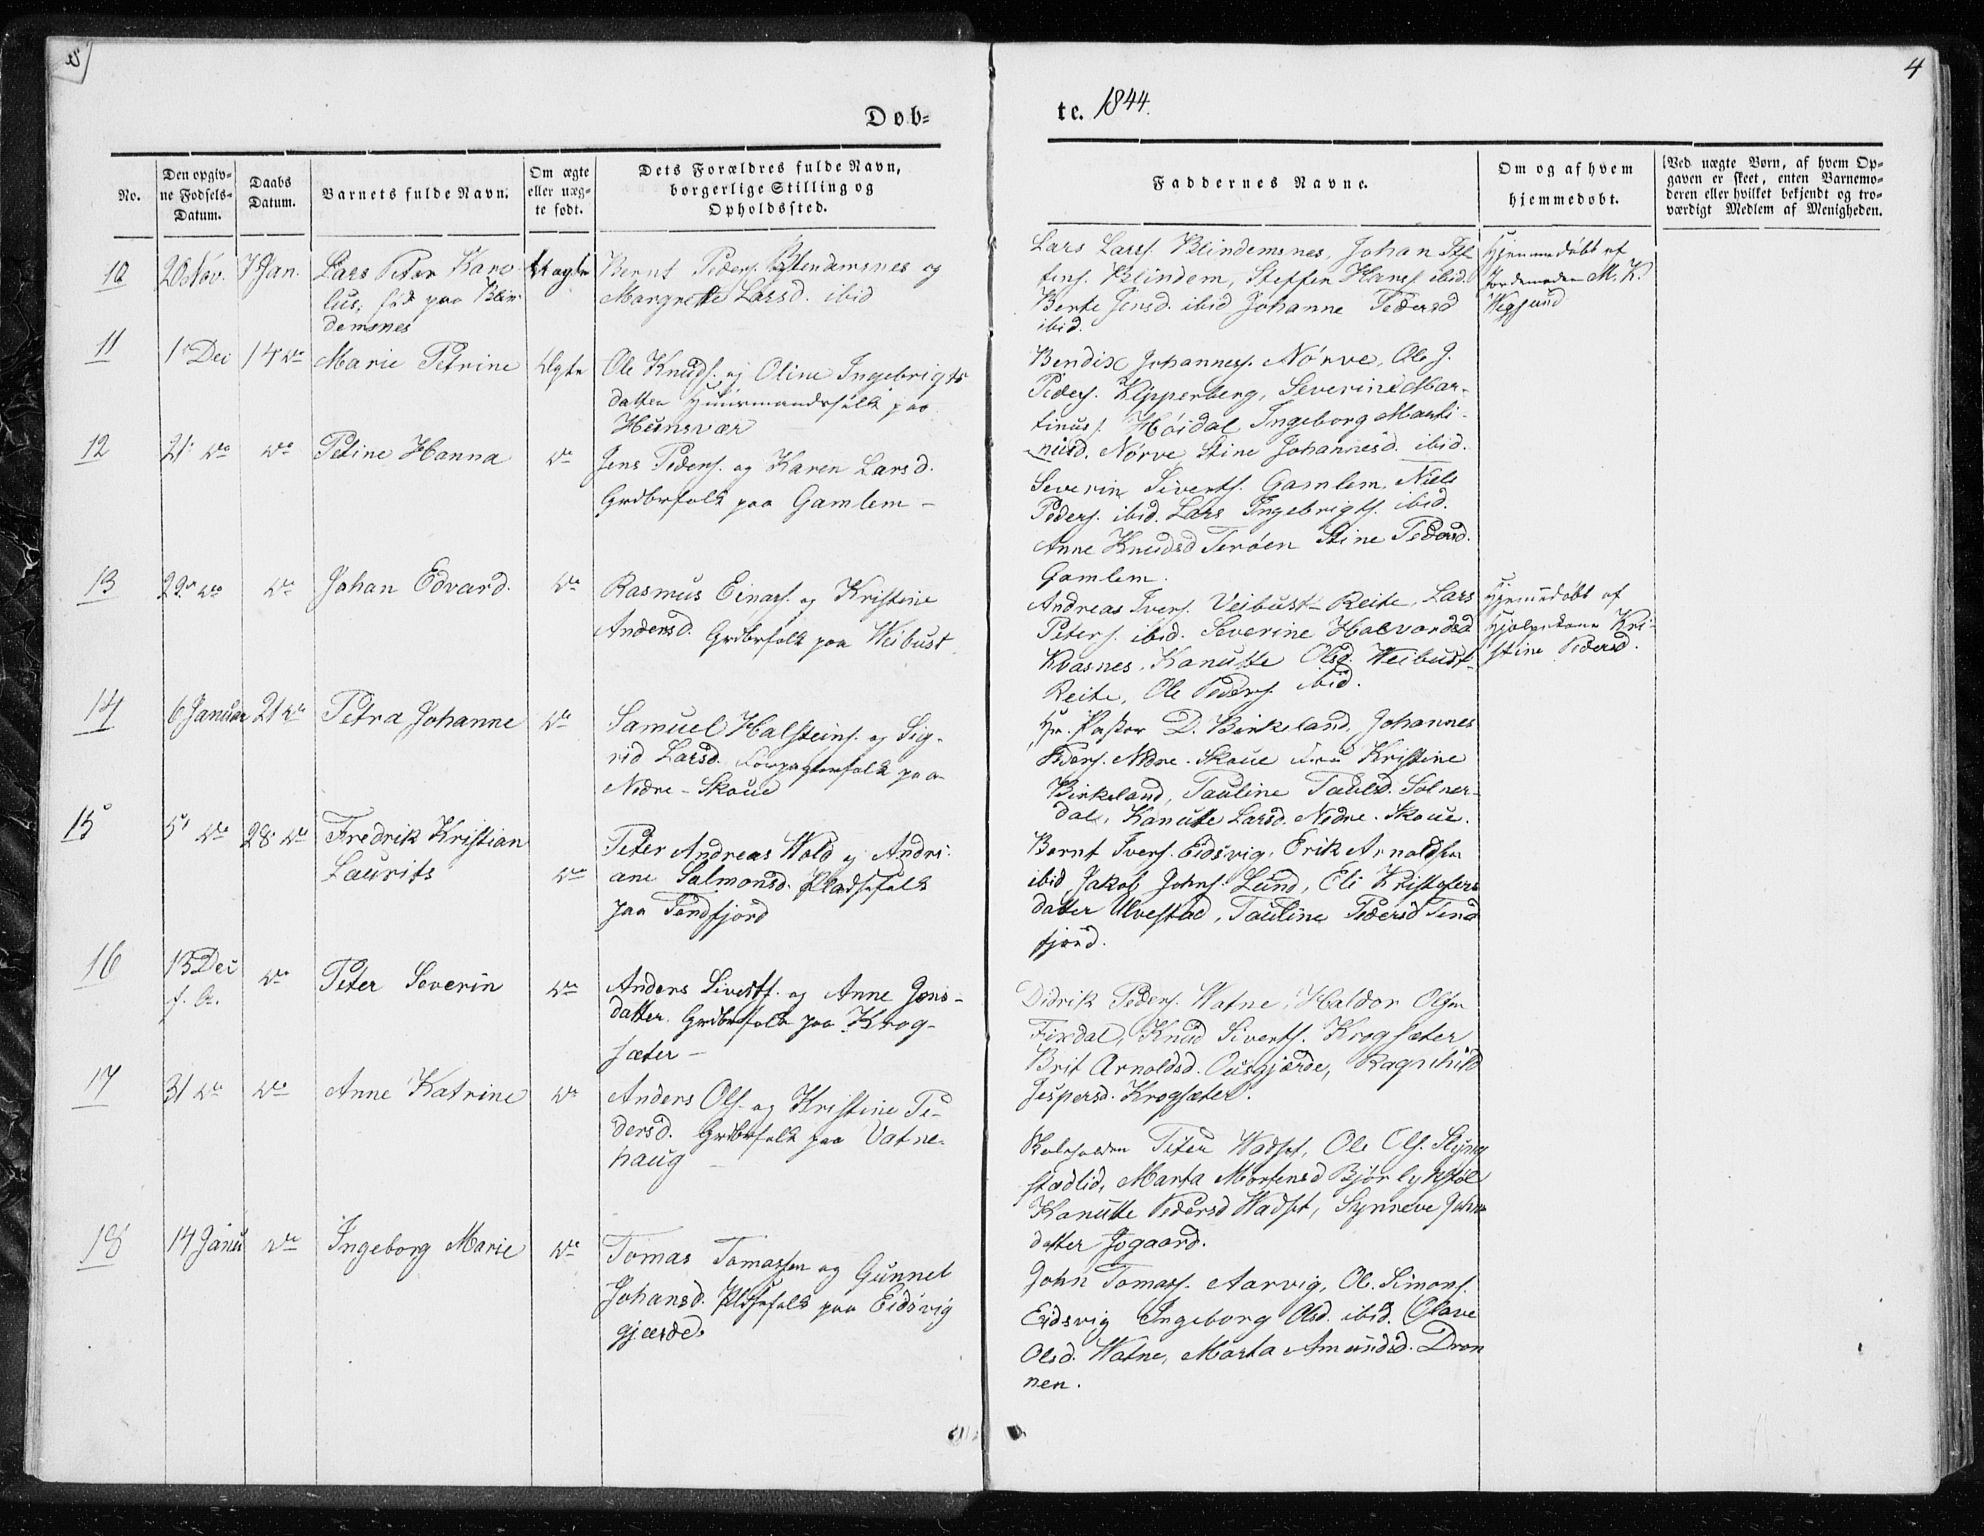 4
Døb-
te. 1844.
No.
Den opgiv-
ne Fødsels-
Datum.
Daabs
Datum.
Barnets fulde Navn.
Om ægte
eller uæg-
te født.
Dets Forældres fulde Navn,
borgerlige Stilling og
Opholdssted.
Faddernes Navne.
Om og af hvem
hjemmedøbt.
Ved uægte Børn, af hvem Op-
gaven er skeet, enten Barnemo-
deren eller hvilket bekjendt og tro-
værdigt Medlem af Menigheden.
10
20 Nov.
7 Jan.
Lars Peter Kare-
lius, fød paa Blin-
demsnes
Uægte
Bernt Peders. Blindemsnes og
Margrette Larsd. ibid
Lars Larss. Blindemsnes, Johan
Blindem, Steffen Hans. ibid.
Berte Jensd. ibid Johanne Pedersd
ibid.
Hjemmedøbt af
Jordemoden M. K.
Wegsund
11
1 Dec
14 do
Marie Petrine
Ægte
Ole Knuds. og Oline Ingebrigts
datter Huusmandsfolk paa
Hunsvær
Bendix Johanness. Nørve, Ole J.
Peders. Kipperberg, Severine Mar-
tinus Høidal Ingeborg Marti-
nusd. Nørve Stine Johannesd. ibid.
12
21 do
do
Petine Hanna
do
Jens Peders. og Karen Larsd.
Grdbrfolk paa Gamlem -
Severin Siverts. Gamlem, Niels
Peders. ibid. Lars Ingebrigts. ibid.
Anne Knudsd Terøen Stine Pedersd.
Gamlem.
13
22 do
do
Johan Edvard.
do
Rasmus Einars. og Kristine
Andersd. Grdbrfolk paa Weibust
Andreas Ivers. Veibust-Reite, Lars
Peters. ibid. Severine Halvardsd
Kvasnes, Kanutte Olsd. Weibust-
Reite, Ole Peders. ibid.
Hjemmedøbt af
Hjelpekone Kri-
stine Pedersd.
14
6 Januar
21 do
Petra Johanne
do
Samuel Halsteins. og Sig-
rid Larsd. Forpagterfolk paa
Nedre-Skoue
Hr. Pastor D. Birkeland, Johannes
Peders. Nedre-Skoue Fru Kristine
Birkeland, Pauline Paulsd. Solner-
dal, Kanutte Larsd. Nedre-Skoue.
15
5 do
28 do
Fredrik Kristian
Laurits
do
Peter Andreas Wold og Andri-
ane Salmonsd. Pladsefolk
paa Tendfjord
Bernt Ivers. Eidsvig, Erik Arnoldsen
ibid, Jakob Johns. Lund, Eli Kristofers
datter Ulvestad, Pauline Pedersd Tend
fjord.
16
13 Dec
f. A.
do
Peter Severin
do
Anders Siverts. og Anne Jens-
datter. Grdbrfolk paa Krog-
sæter -
Didrik Peders. Watne, Haldor Olsen
Fixdal, Knud Siverts. Krogsæter,
Brit Arnoldsd. Ousgjærde, Ragnhild
Jespersd. Krogsæter.
17
31 do
do
Anne Katrine
do
Anders Ols. og Kristine Pe-
dersd. Grdbrfolk paa Vatne-
haug -
Peter Wadset, Ole Ols. Slyng
stadlid, Marta Mortensd Bjørlykstøl
Kanutte Pedersd Wadset, Synneve John
datter Jogaard.
18
14 Janu
do
Ingeborg Marie
do
Tomas Tomassen og Gunnel
Johansd. Pldsefolk paa Eidsvig
gjærde.
John Tomass. Aarvig, Ol. Simons.
Eidsvig Ingeborg Olsd. ibid. Olave
Olsd. Watne, Marta Amundsd. Dron
nen.